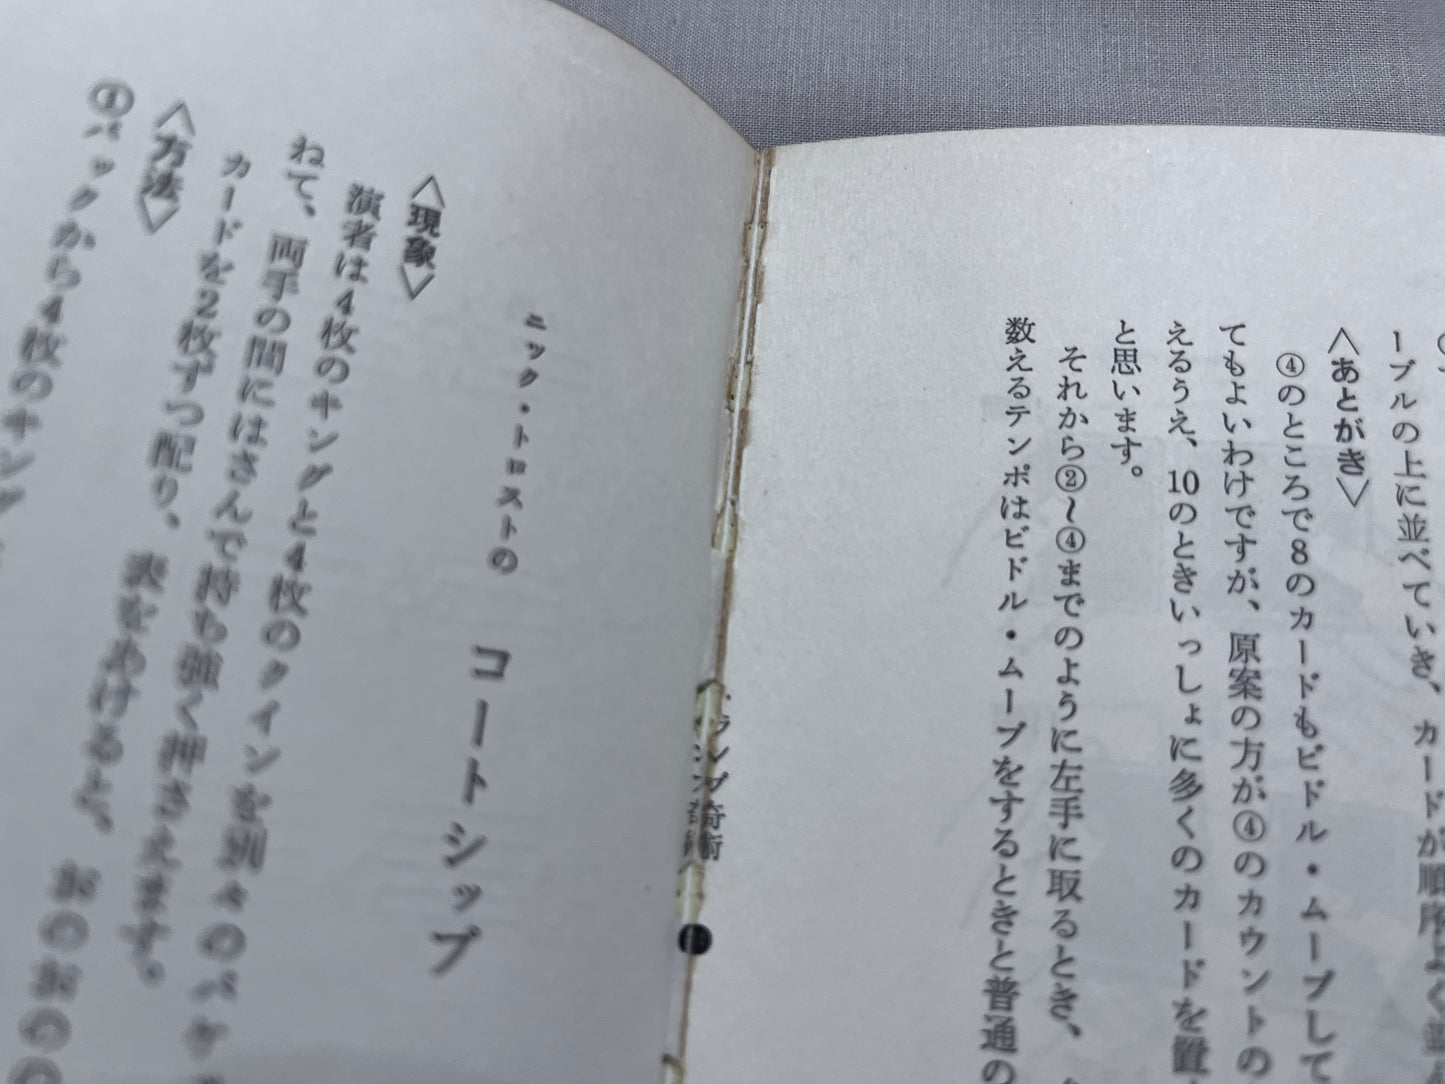 ーブルの上に並べていき、カードが順序よく並
〈あとがき〉
④のところで8のカードもビドル・ムーブして
てもよいわけですが、原案の方が④のカウントの
えるうえ、10のときいっしょに多くのカードを置
と思います。
それから②〜④までのように左手に取るとき、
数えるテンポはビドル・ムーブをするときと普通の
ニック・トロストの
コートシップ
〈現象〉
演者は4枚のキングと4枚のクインを別々のパケ
ねて、両手の間にはさんで持ち強く押さえます。
カードを2枚ずつ配り、表をあけると、おのおの
〈方法〉
①パックから4枚のキング